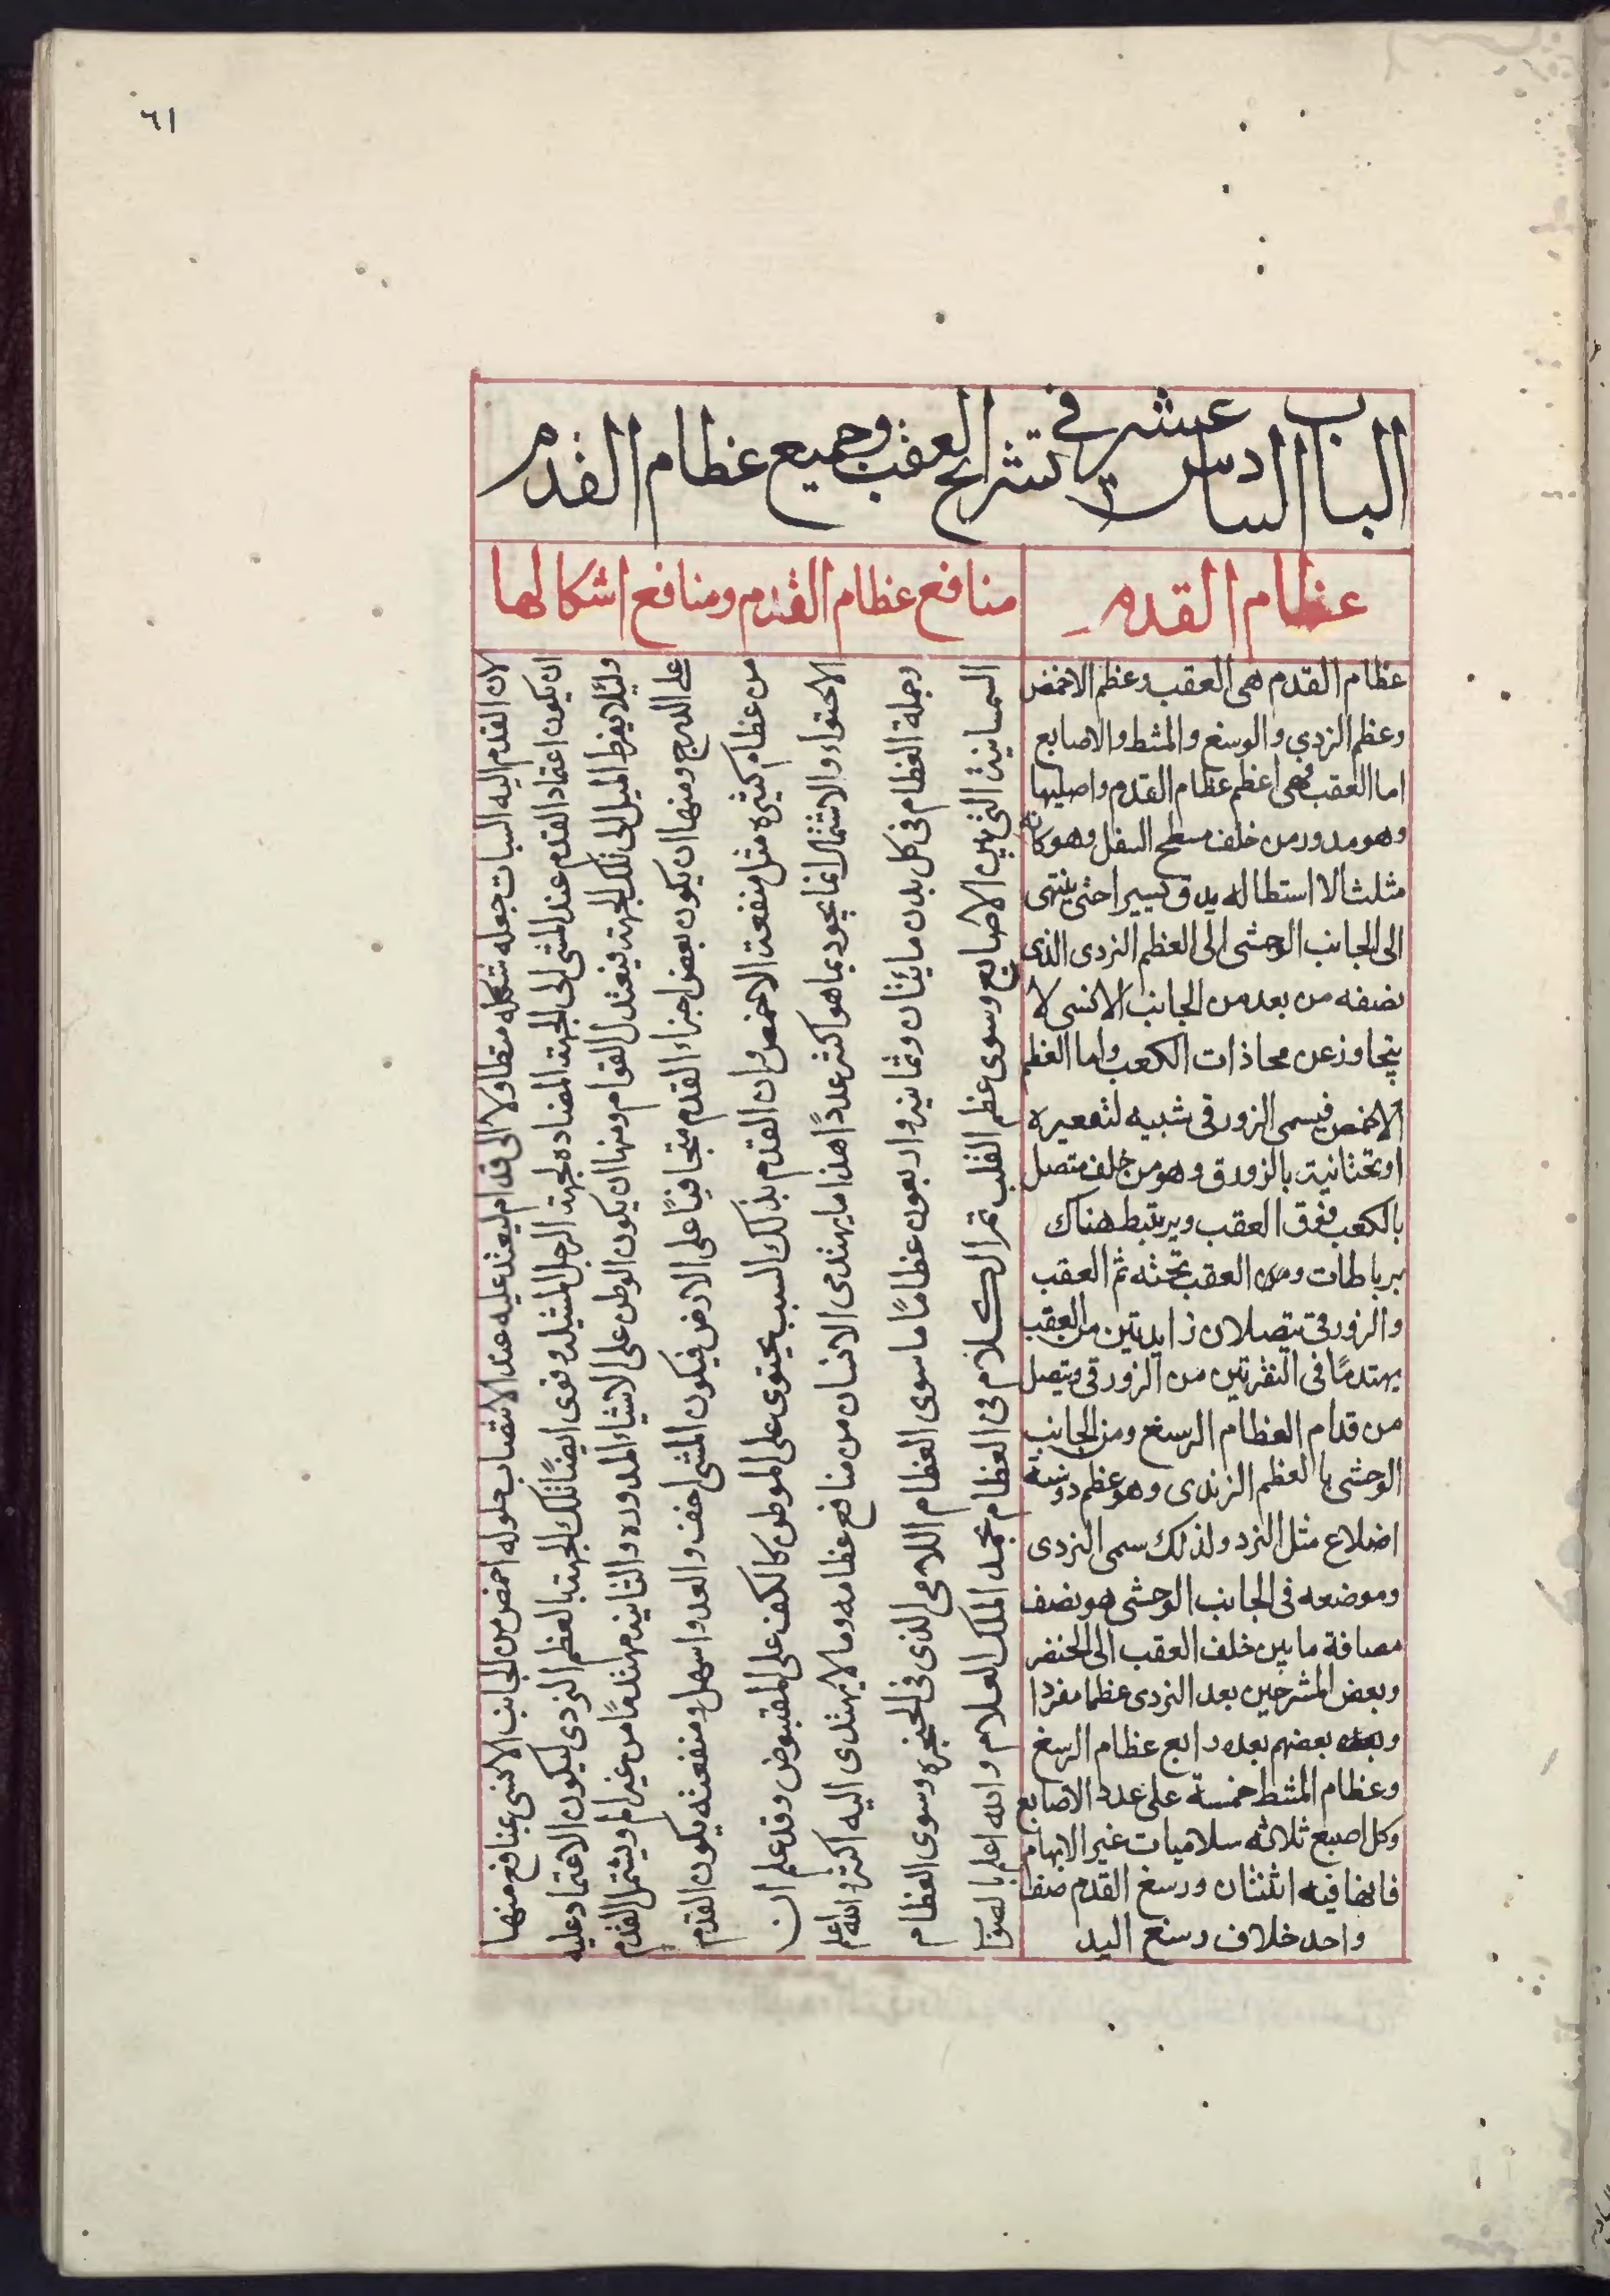 ٦١
الباب السادس عشر في تشريح العقب وجميع عظام القدم
عظام القدم
منافع عظام القدم ومنافع اشكالها
عظام القدم هى العقب وعظم الاخمص
وعظم الزدي والوسغ والمشط والاصابع
اما العقب فهى اعظم عظام القدم واصليها
وهو مدور من خلف مسطح السفل وهو كانه
مثلث الا استطاله يدق يسيرا حتى ينتهى
الى الجانب الوحشى الى العظم النردى الذى
نصفه من بعد من الجانب الانسى لا
يتجاوز عن محاذات الكعب واما العظم
الاخمص فيسمى الزورقى شبيه لتقعيره
او تحتانيته بالزورق وهو من خلف متصل
بالكعب فوق العقب ويرتبط هناك
برباطات ومن العقب تحته ثم العقب
والزورقى يتصلان زايدتين من العقب
يهتدمًا فى النقرتين من الزورقى ويتصل
من قدام العظام الرسغ ومن الجانب
الوحشى بالعظم الزندى وهو عظم ذو ستة
اضلاع مثل النرد ولذلك سمى النردى
وموضعه فى الجانب الوحشى هو نصف
مصافة ما بين خلف العقب الى الخنصر
وبعض المشرحين بعد النردى عظما مفردا
وبعده بعضهم بعده رابع عظام الرسغ
وعظام المشط خمسة على عدد الاصابع
وكل اصبع ثلاثه سلاميات غير الابهام
فانها فيه اثنتان ورسغ القدم صفا
واحد خلاف رسغ اليد
لان القدم اليه السبات جعله شكله متطاولا الى قدام ليعتد عليه عند الانتصاب حلوله اخمص من الجانب الانسى بمنافع منها
ان يكون اعتماد القدم عند المشى الى الجهة المضاده لجهة الرجل المشيله وفوى ايضًا تلك الجهة بالعظم النردى ليكون الاعتماد عليه
وليلا يفرط الميل الى تلك الجهة فيعتدل القوام ومنها ان يكون الوطى على الاشياء المدوره والناتيه مهندمًا من غير الم ويشتمل القدم
على الدرج ومنها ان يكون بعض اجزاء القدم متجافيًا على الارض فيكون المشى اخف والعدو اسهل ومنفعته يكون القدم
من عظام كثيره مثل منفعة الاخمص وان القدم بذلك السبب يحتوى على الموطى كالكف على المقبوض وقد علم ان
الاحتواء والاشتمال انما يجود بما هو اكثر عددًا هذا ما يهتدى الانسان من منافع عظامه وما لا يهتدى اليه اكثر والله اعلم
وجملة العظام فى كل بدن مايتان وثمانيه واربعون عظامًا ما سوى العظام اللامى الذى فى الحنجره وسوى العظام
السمسانية التى بين الاصابع وسوى عظم القلب تم الكلام فى العظام بحمد الملك العلام والله اعلم بالصواب